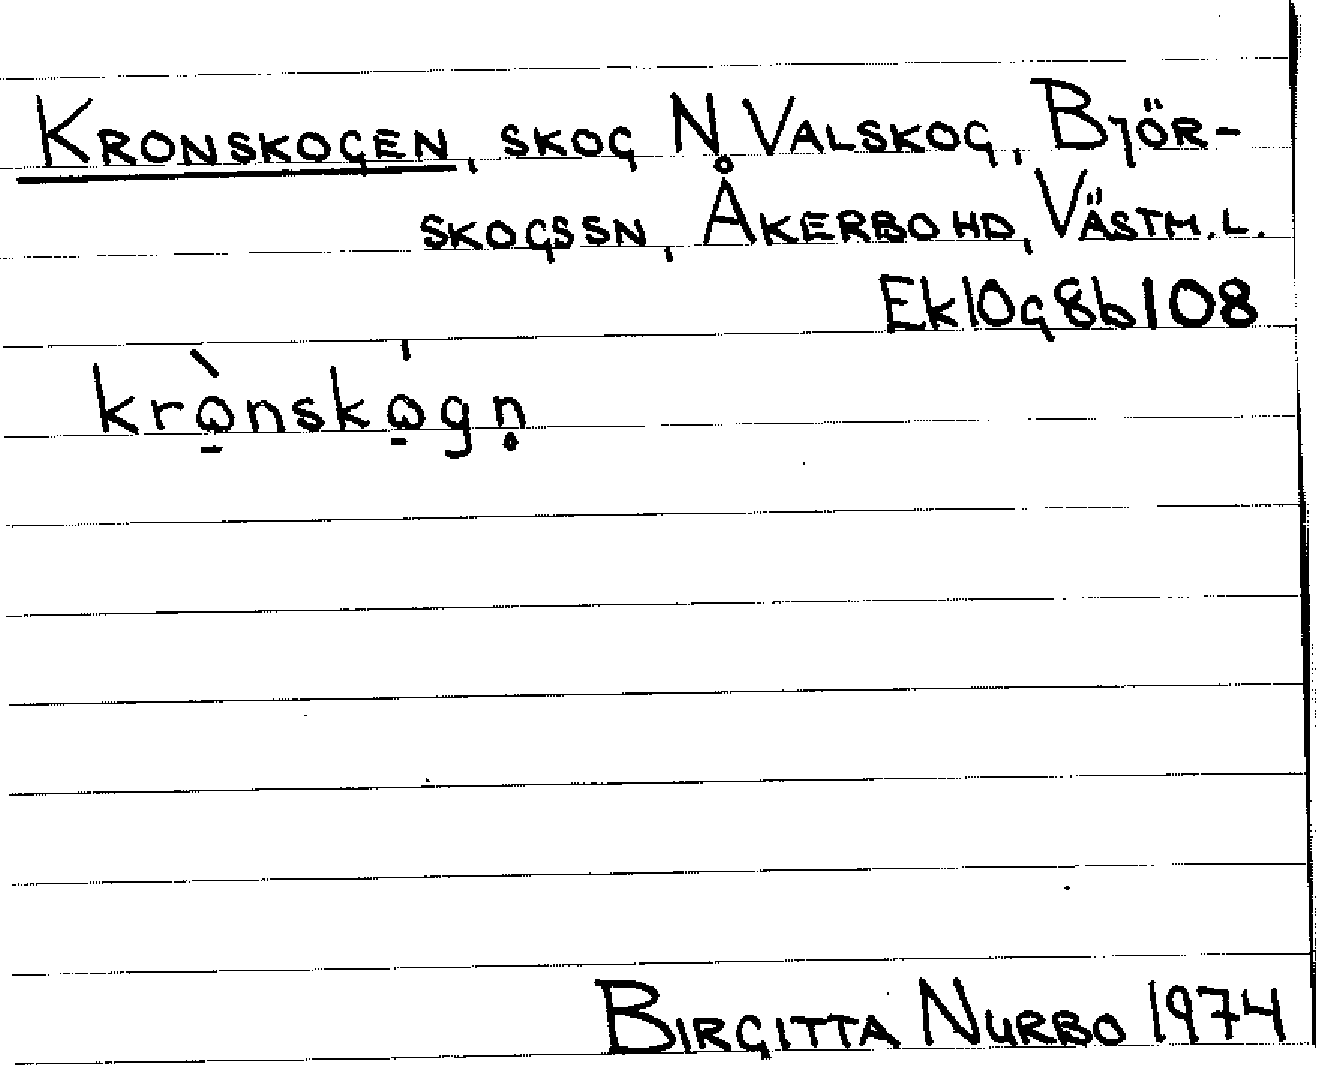 KRONSKOGEN, SKOG N. VALSKOG, BJÖR-
SKOGSSN, ÅKERBO HD, VÄSTM.L.
Ek10g8b108
krὼ̱nskώ̱gn̥
BIRGITTA NURBO 1974